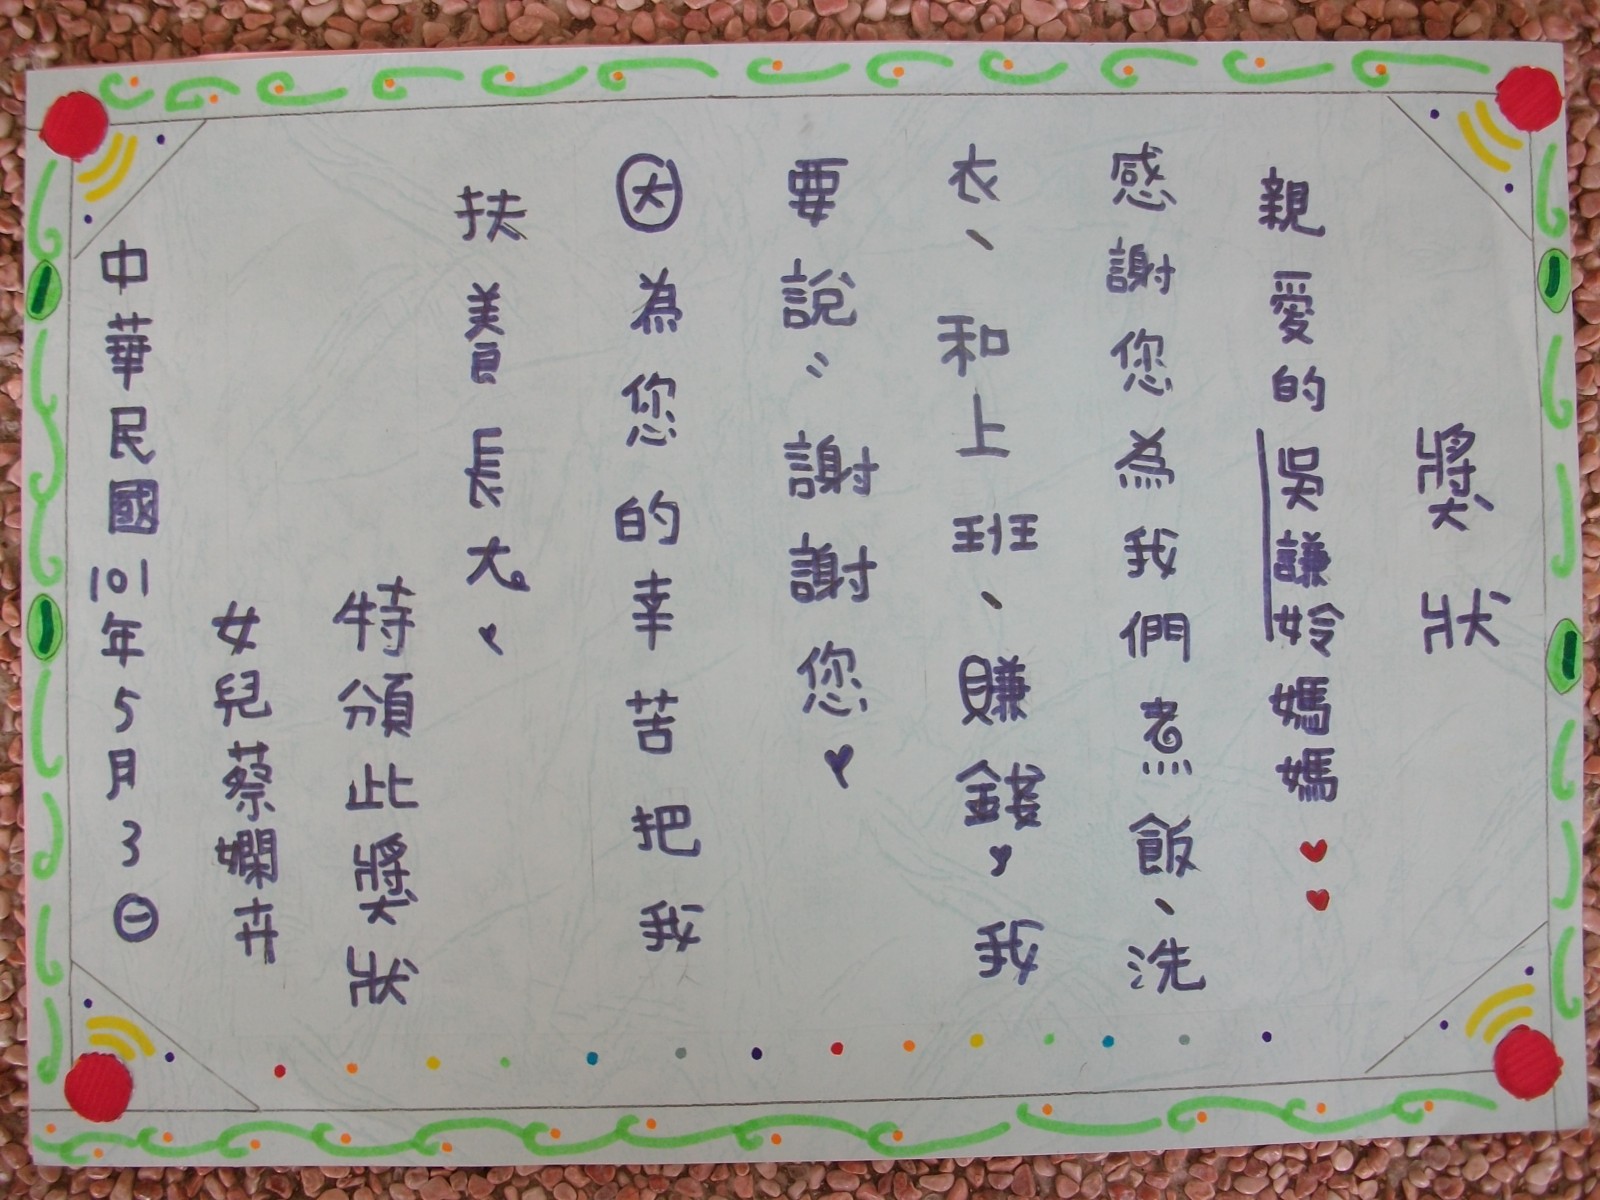 獎狀
親愛的吳謙姈媽媽
感謝您為我們煮飯、洗
衣、和上班、賺錢,我
要說:謝謝您
因為您的幸苦把我
扶養長大。
特頒此獎狀
女兒蔡嫻卉
中華民國101年5月3日